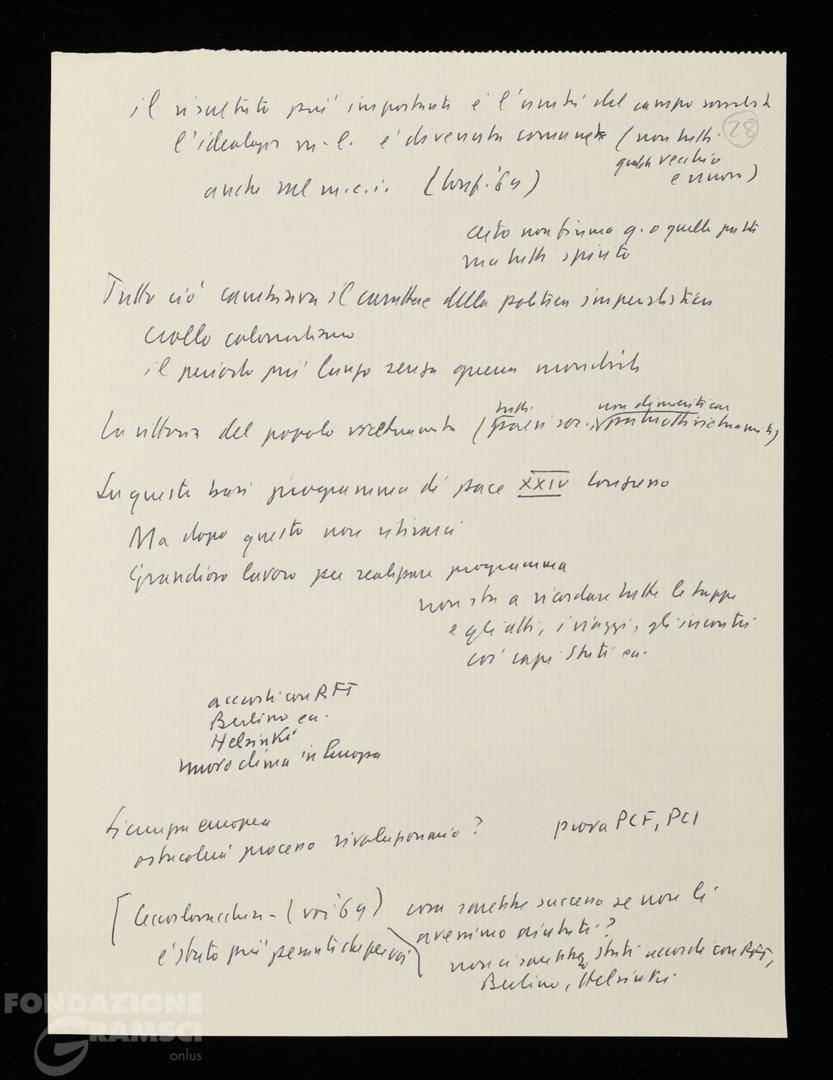 28
il risultato più importante è l'unità del campo
l'ideologia m-l. è diventata comune (non tutti
qualche vecchio
e nuovo)
anche nel m.c.i. (Conf. '69)
certo non firma q. o quelle parti
ma tutti spirito
Tutto ciò cambiava il carattere della politica imperialistica
crollo colonialismo
il periodo più lungo senza guerra mondiale
La vittoria del popolo vietnamita (tutti paesi soc. non dimenticare
Su queste basi programma di pace XXIV Congresso
Ma dopo questo non ritirarci
Grandioso lavoro per realizzare programma
non sto a ricordare tutte le tappe
e gli atti, i viaggi, gli incontri
coi capi Stati ecc.
accordi con RFT
Berlino ecc.
Helsinki
nuovo clima in Europa
Sicurezza europea
ostacolerà processo rivoluzionario? prova PCF, PCI
[Cecoslovacchia - (voi '69) cosa sarebbe successo se non li
avessimo aiutati?
è stato più pesante che per voi
non ci sarebbero stati accordi con RFT,
Berlino, Helsinki
FONDAZIONE
GRAMSCI
onlus